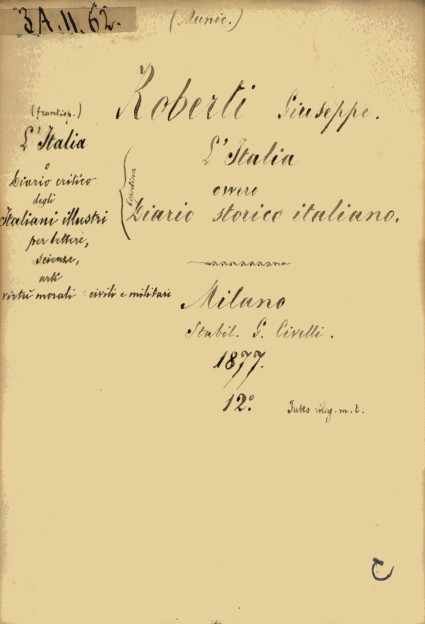 3A.11.62.
(Munic.)
Roberti Giuseppe.
(frontisp.)
L'Italia
o
Diario critico
degli
Italiani illustri
per lettere,
scienze,
arti
virtù morali civili e militari
L'Italia
ovvero
Diario storico italiano.
Milano
Stabil. G. Civelli.
1877.
12.º
Tutto rileg. m. t.